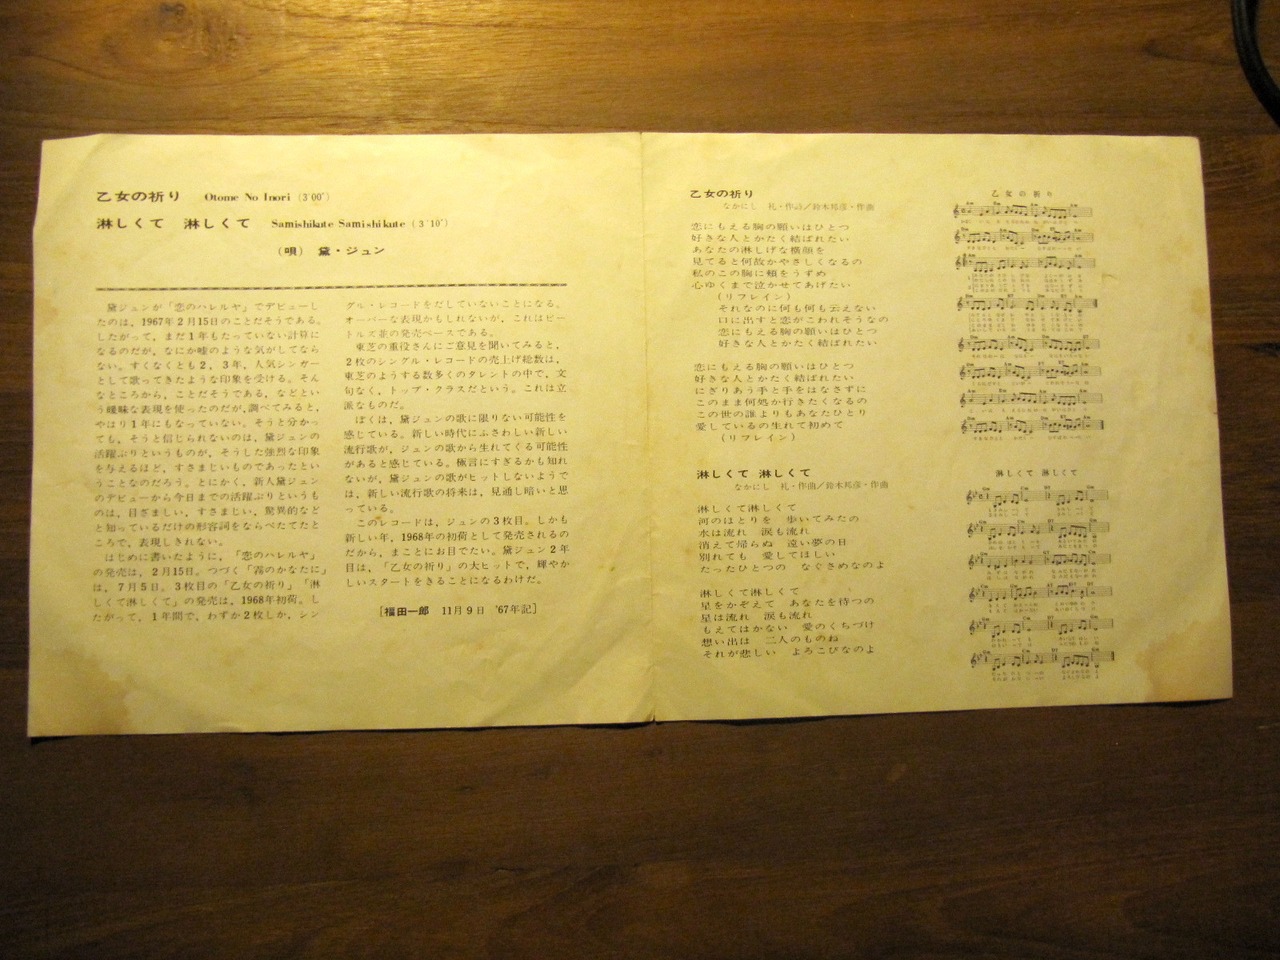 乙女の祈り Otome No Inori (3'00")
淋しくて 淋しくて Samishikute Samishikute (3'10")
(唄) 黛・ジュン
黛ジュンが「恋のハレルヤ」でデビューし
たのは，1967年2月15日のことだそうである。
したがって，まだ1年もたっていない計算に
なるのだが，なにか嘘のような気がしてなら
ない。すくなくとも2，3年，人気シンガー
として歌ってきたような印象を受ける。そん
なところから，ことだそうである，などとい
う曖昧な表現を使ったのだが，調べてみると，
やはり1年にもなっていない。そうと分かっ
ても，そうと信じられないのは，黛ジュンの
活躍ぶりというものが，そうした強烈な印象
を与えるほど，すさまじいものであったとい
うことなのだろう。とにかく，新人黛ジュン
のデビューから今日までの活躍ぶりというも
のは，目ざましい，すさまじい，驚異的など
と知っているだけの形容詞をならべたてたと
ころで，表現しきれない。
はじめに書いたように，「恋のハレルヤ」
の発売は，2月15日。つづく「霧のかなたに」
は，7月5日。3枚目の「乙女の祈り」「淋
しくて淋しくて」の発売は，1968年初荷。し
たがって，1年間で，わずか2枚しか，シン
グル・レコードをだしていないことになる。
オーバーな表現かもしれないが，これはビー
トルズ並の発売ペースである。
東芝の重役さんにご意見を聞いてみると，
2枚のシングル・レコードの売上げ総数は，
東芝のようする数多くのタレントの中で，文
句なく，トップ・クラスだという。これは立
派なものだ。
ぼくは，黛ジュンの歌に限りない可能性を
感じている。新しい時代にふさわしい新しい
流行歌が，ジュンの歌から生れてくる可能性
があると感じている。極言にすぎるかも知れ
ないが，黛ジュンの歌がヒットしないようで
は，新しい流行歌の将来は，見通し暗いと思
っている。
このレコードは，ジュンの3枚目。しかも
新しい年，1968年の初荷として発売されるの
だから，まことにお目でたい。黛ジュン2年
目は，「乙女の祈り」の大ヒットで，輝やか
しいスタートをきることになるわけだ。
[福田一郎 11月9日 '67年記]
乙女の祈り
なかにし 礼・作詩／鈴木邦彦・作曲
恋にもえる胸の願いはひとつ
好きな人とかたく結ばれたい
あなたの淋しげな横顔を
見てると何故かやさしくなるの
私のこの胸に頬をうずめ
心ゆくまで泣かせてあげたい
(リフレイン)
それなのに何も何も云えない
口に出すと恋がこわれそうなの
恋にもえる胸の願いはひとつ
好きな人とかたく結ばれたい
恋にもえる胸の願いはひとつ
好きな人とかたく結ばれたい
にぎりあう手と手をはなさずに
このまま何処か行きたくなるの
この世の誰よりもあなたひとり
愛しているの生れて初めて
(リフレイン)
淋しくて 淋しくて
なかにし 礼・作曲／鈴木邦彦・作曲
淋しくて淋しくて
河のほとりを 歩いてみたの
水は流れ 涙も流れ
消えて帰らぬ 遠い夢の日
別れても 愛してほしい
たったひとつの なぐさめなのよ
淋しくて淋しくて
星をかぞえて あなたを待つの
星は流れ 涙も流れ
もえてはかない 愛のくちづけ
想い出は 二人のものね
それが悲しい よろこびなのよ
乙女の祈り
淋しくて 淋しくて